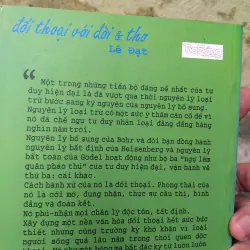 đối thoại với đời & thơ
Lê Đạt
“
Một trong những tiến bộ đáng nể nhất của tư
duy hiện đại là đã vượt qua thời nguyên lý loại
trừ bước sang kỷ nguyên của nguyên lý bổ sung.
Nguyên lý loại trừ có một sức ỳ thâm căn cố đế vì
nó đã chế ngự tư duy nhân loại đằng đẵng hàng
nghìn năm trời.
Nguyên lý bổ sung của Bohr và đôi bạn đồng hành
nguyên lý bất định của Heisenberg và nguyên lý
bất toàn của Godel hoạt động như bộ ba "ngự lâm
quân pháo thủ" của tư duy hiện đại, vận hành về
thứ ba: cái khác.
Cách hành xử của nó là đối thoại. Phong thái của
nó là cởi mở, dung nhận, thực sự cầu thị, bình
đẳng và đoàn kết.
Nó phủ-nhận mọi chân lý độc tôn, tất định.
Xây dựng một nền văn hóa đối thoại hết sức bức
thiết nhưng cũng trường kỳ khó khăn vì loài
người sống quá lâu năm trong thói quen độc